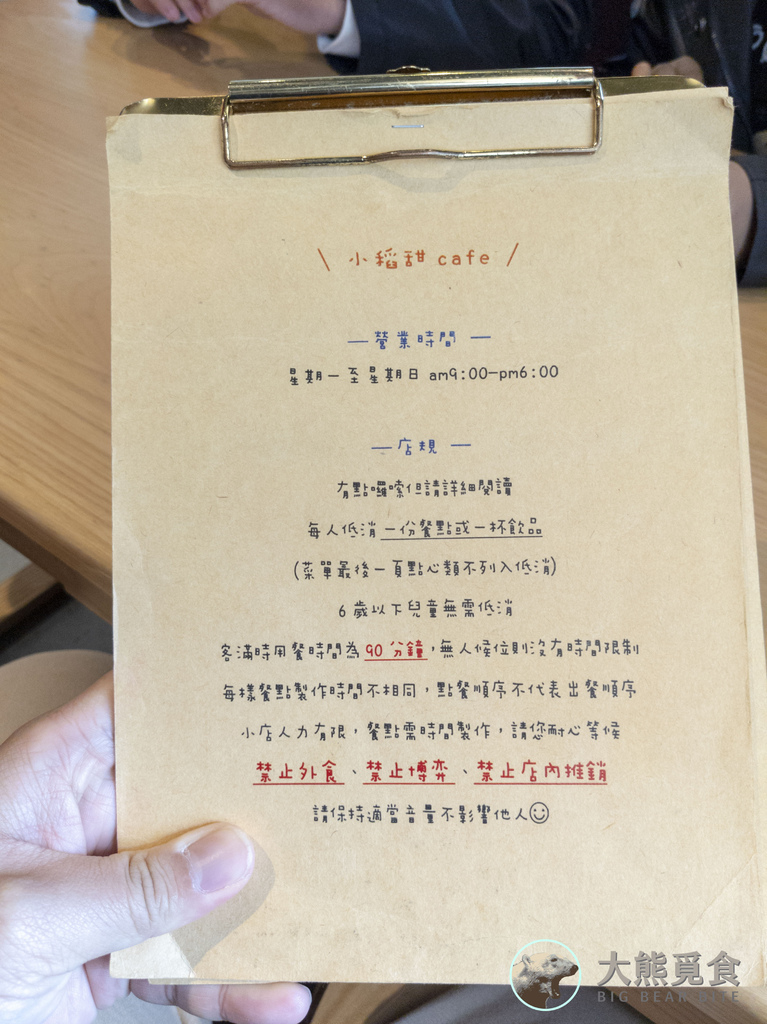 \ 小稻甜 cafe /
— 營業時間 —
星期一至星期日 am9:00-pm6:00
— 店規 —
有點囉嗦但請詳細閱讀
每人低消一份餐點或一杯飲品
(菜單最後一頁點心類不列入低消)
6 歲以下兒童無需低消
客滿時用餐時間為 90 分鐘,無人候位則沒有時間限制
每樣餐點製作時間不相同,點餐順序不代表出餐順序
小店人力有限,餐點需時間製作,請您耐心等候
禁止外食、禁止博弈、禁止店內推銷
請保持適當音量不影響他人☺
大熊覓食
BIG BEAR BITE